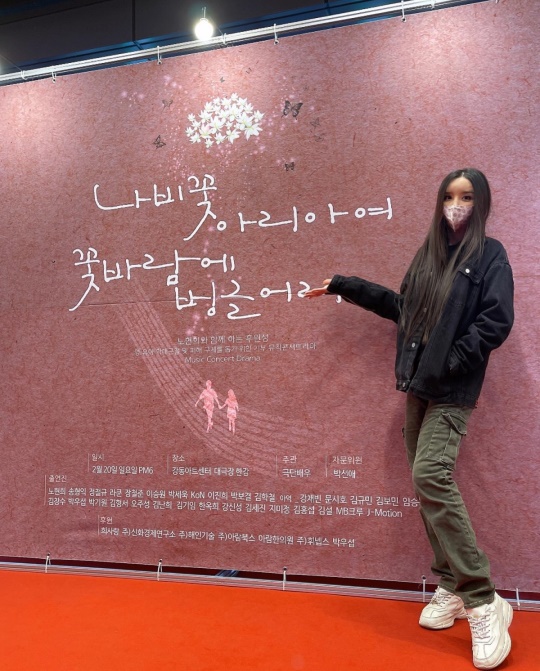 나비꽃
아리아여
꽃바람에
벙글어라
노현희와 함께 하는 우현성
Music Concert Drama
일시
2월 20일 일요일 PM6
장소
강동아트센터 대극장 한강
주관
극단배우
자문위원
박선애
출연진
노현희 송형일 정철규 라쿤 장철준 이승원 박세욱 KoN 이진희 박보결 김학철 아역 . 강채빈 문시호 김규민 김보민 임승
김장수 박우섭 박기원 김형서 오주성 강난희 김기일 한옥희 강신성 김세진 지미정 김홍섭 김설 MB크루 J-Motion
후원
희사랑 주)신화경제연구소 주)해인기술 주)아람북스 아람한의원 주)휘넵스 박우섭